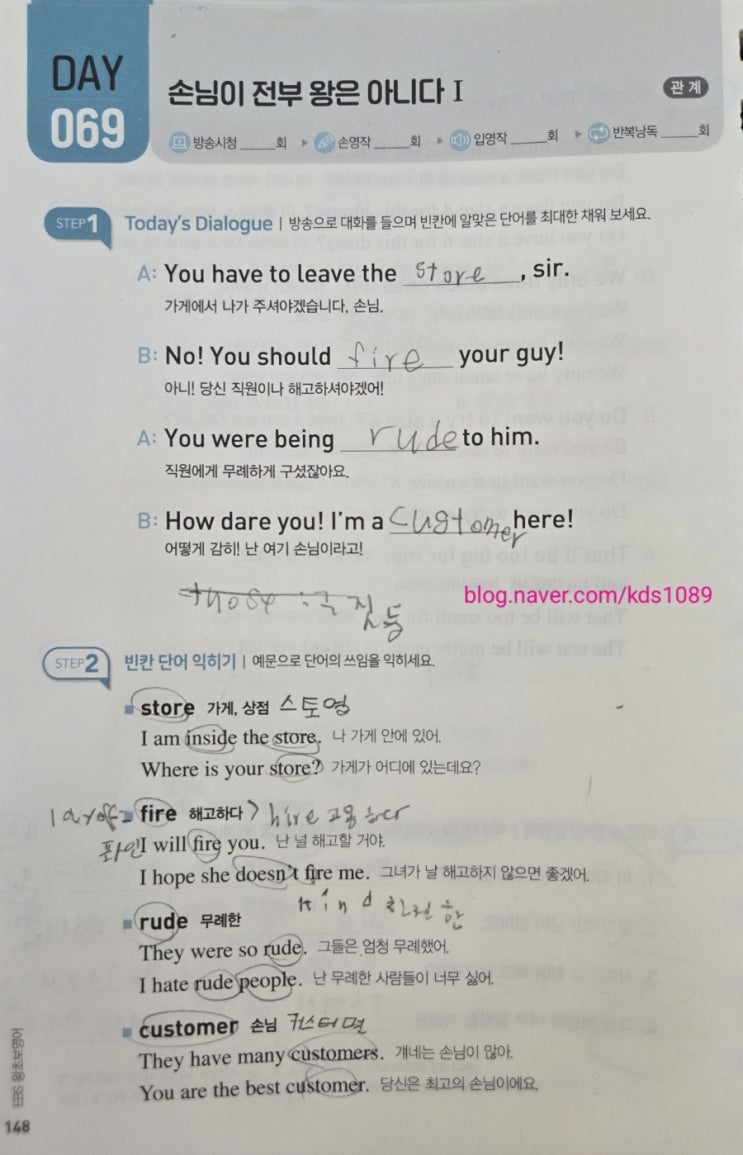 DAY
069
손님이 전부 왕은 아니다 I
관계
방송시청 _____회 ▶ 손영작 _____회 ▶ 입영작 _____회 ▶ 반복낭독 _____회
STEP1 Today's Dialogue | 방송으로 대화를 들으며 빈칸에 알맞은 단어를 최대한 채워 보세요.
A: You have to leave the store, sir.
가게에서 나가 주셔야겠습니다, 손님.
B: No! You should fire your guy!
아니! 당신 직원이나 해고하셔야겠어!
A: You were being rude to him.
직원에게 무례하게 구셨잖아요.
B: How dare you! I'm a customer here!
어떻게 감히! 난 여기 손님이라고!
blog.naver.com/kds1089
STEP2 빈칸 단어 익히기 | 예문으로 단어의 쓰임을 익히세요.
store 가게, 상점 스토영
I am inside the store. 나 가게 안에 있어.
Where is your store? 가게가 어디에 있는데요?
layoff= fire 해고하다 > hire 고용하다
파인 I will fire you. 난 널 해고할 거야.
I hope she doesn't fire me. 그녀가 날 해고하지 않으면 좋겠어.
rude 무례한 kind 친절한
They were so rude. 그들은 엄청 무례했어.
I hate rude people. 난 무례한 사람들이 너무 싫어.
customer 손님 커스터멸
They have many customers. 걔네는 손님이 많아.
You are the best customer. 당신은 최고의 손님이에요.
EBS 왕초보영어
148